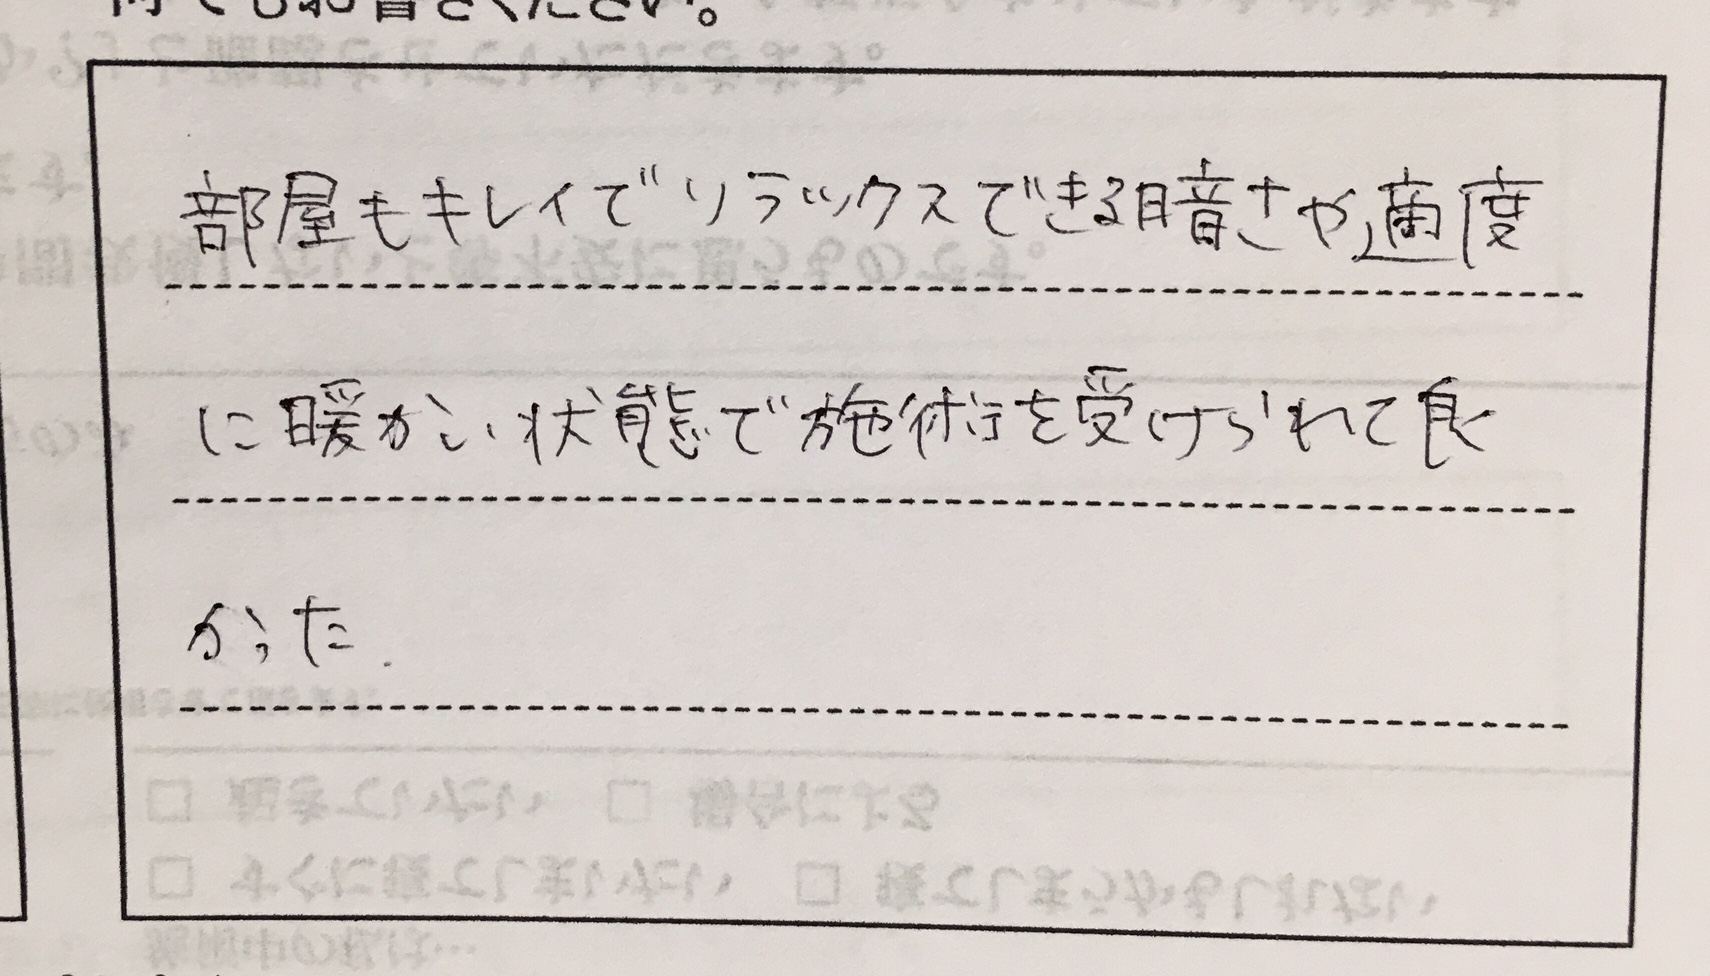 何でもお書きください。
部屋もキレイでリラックスできる暗さや適度
に暖かい状態で施術を受けられて良
かった.